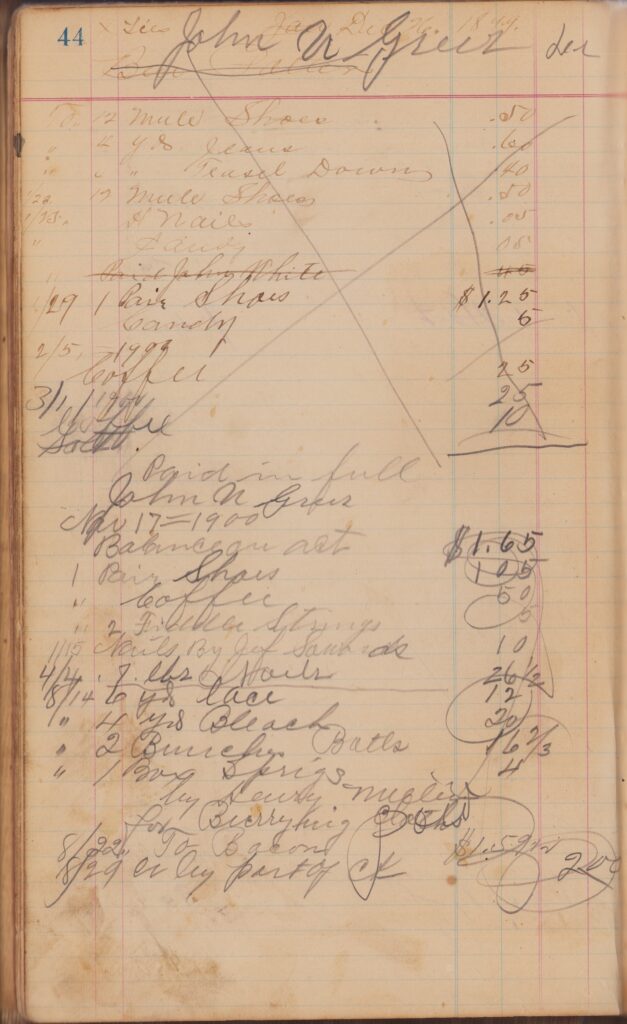 44
John N Greer
12 Mule Shoes .50
" 4 yds Jeans .60
" " " Teasel Down 40
12 Mule Shoes .50
H Nails .05
Candy 05
Paid John White
1/29 1 Pair Shoes $1.25
Candy 5
2/5
Coffee 25
3/1/1900 25
10
Paid in full
John N Greer
Nov 17=1900
Balance on act $1.65
1 Pair Shoes 105
" Coffee 50
" 2 Fiddle Strings 5
1/15 Nails By 10
4/24 7 lbs Nails 26 1/2
8/14 6 yds lace 12
" 4 yds Bleach 20
" 2 Bunches Batts 16 2/3
" 1 Box Sprigs 4
by Henry
for Burrying Clothes
8/22 To Bacon
8/29 cr by part of ck